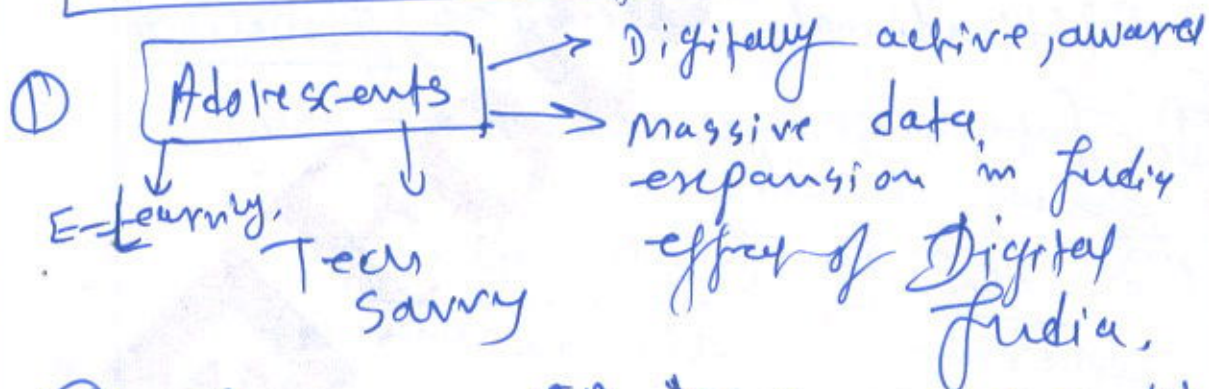 ① Adolescents
Digitally active, aware
Massive data
expansion in India
effect of Digital
India.
E-Learning.
Tech
Savvy